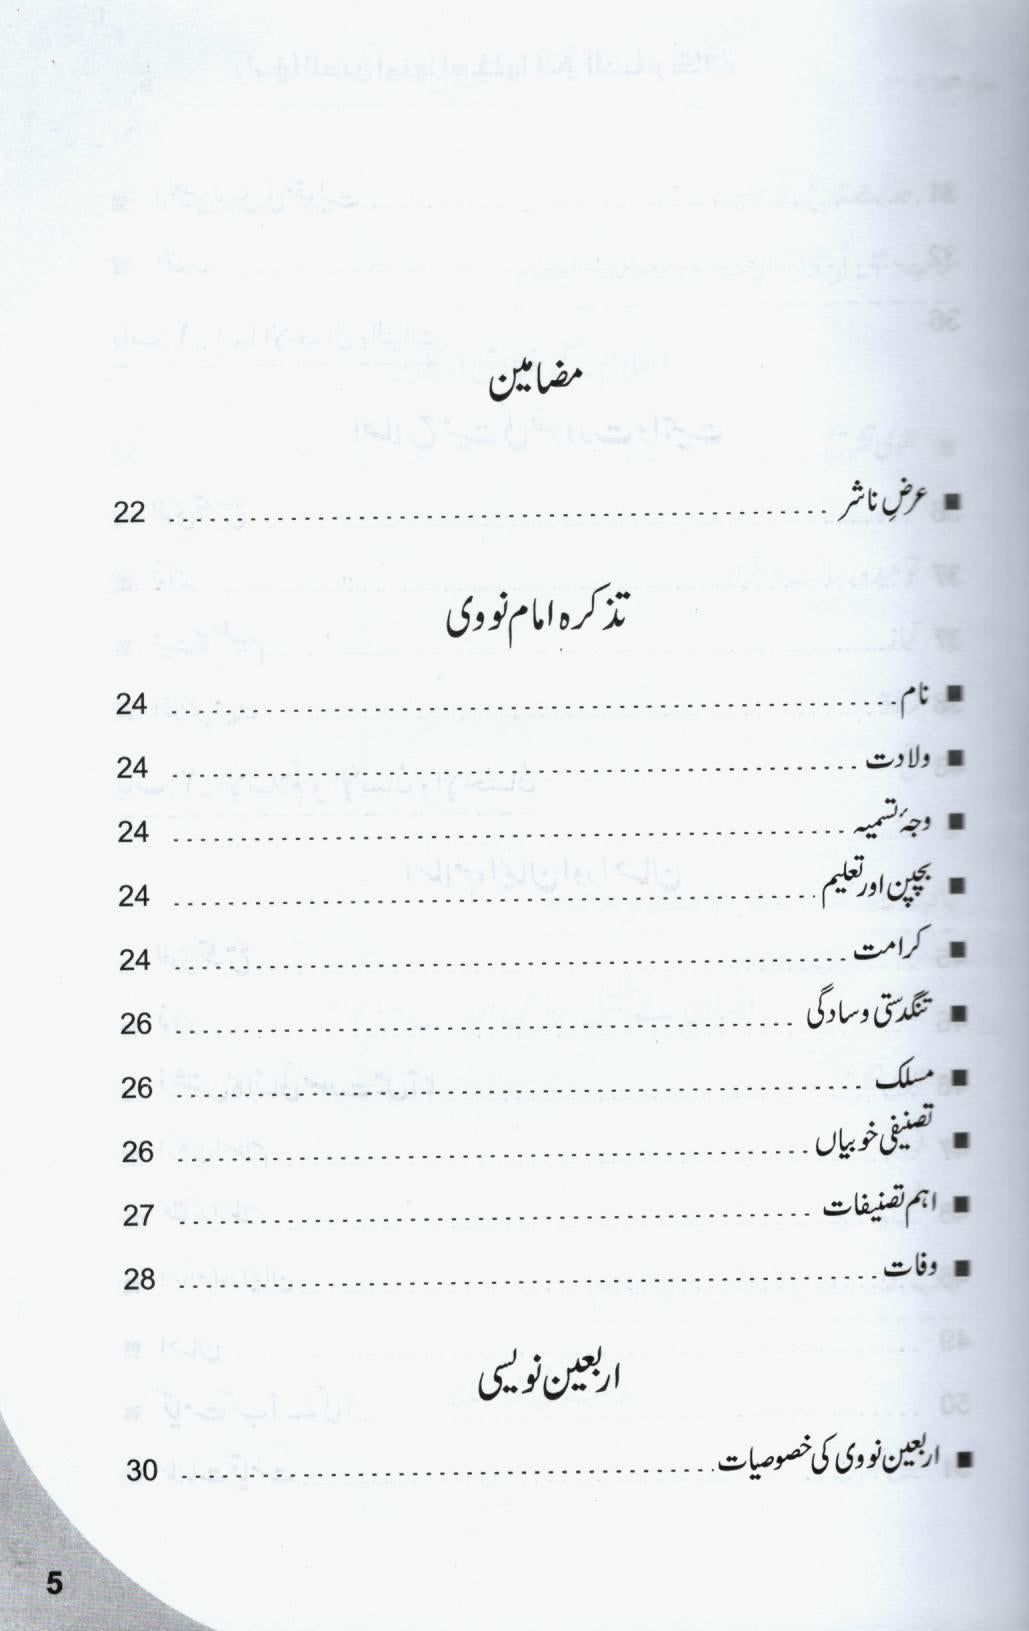 مضامین
■ عرضِ ناشر ........ 22
تذکرہ امام نووی
■ نام ........ 24
■ ولادت ........ 24
■ وجۂ تسمیہ ........ 24
■ بچپن اور تعلیم ........ 24
■ کرامت ........ 24
■ تنگدستی و سادگی ........ 26
■ مسلک ........ 26
■ تصنیفی خوبیاں ........ 26
■ اہم تصنیفات ........ 27
■ وفات ........ 28
اربعین نویسی
■ اربعین نووی کی خصوصیات ........ 30
5